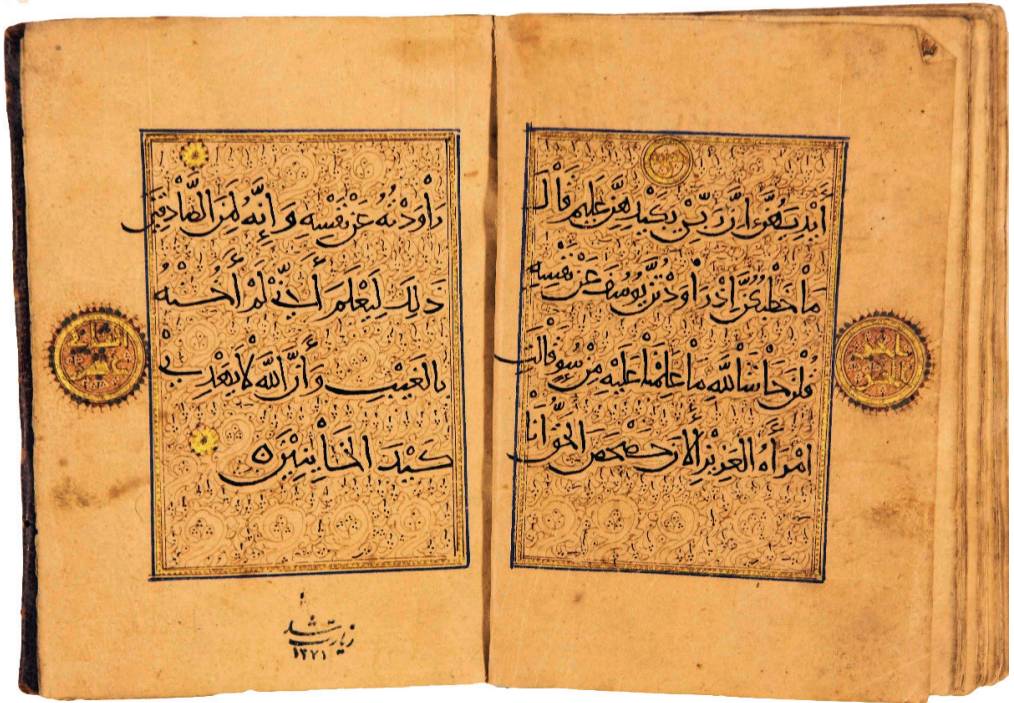 أَيْدِيَهُنَّ إِنَّ رَبِّي بِكَيْدِهِنَّ عَلِيمٌ قَالَ
مَا خَطْبُكُنَّ إِذْ رَاوَدْتُنَّ يُوسُفَ عَنْ نَفْسِهِ
قُلْنَ حَاشَا لِلَّهِ مَا عَلِمْنَا عَلَيْهِ مِنْ سُوءٍ قَالَتِ
امْرَأَةُ الْعَزِيزِ الْأَنَ حَصْحَصَ الْحَقُّ أَنَا
رَاوَدْتُهُ عَنْ نَفْسِهِ وَإِنَّهُ لَمِنَ الصَّادِقِينَ
ذَلِكَ لِيَعْلَمَ أَنِّي لَمْ أَخُنْهُ
بِالْغَيْبِ وَأَنَّ اللَّهَ لَا يَهْدِي
كَيْدَ الْخَايِنِينَ
زیارت شد